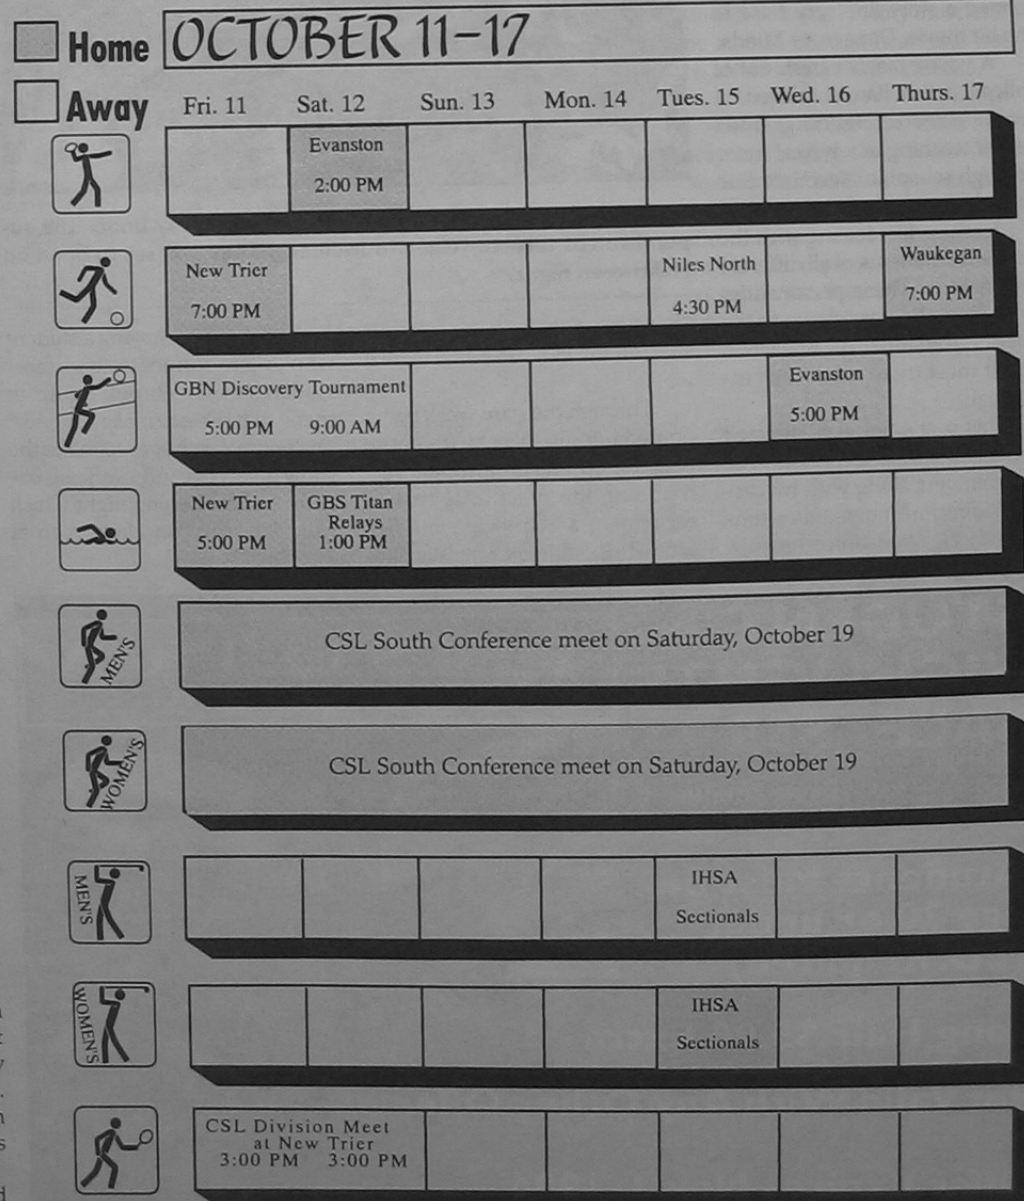 Home
OCTOBER 11–17
Away
Fri. 11 Sat. 12 Sun. 13 Mon. 14 Tues. 15 Wed. 16 Thurs. 17
Evanston
2:00 PM
New Trier
7:00 PM
Niles North
4:30 PM
Waukegan
7:00 PM
GBN Discovery Tournament
5:00 PM 9:00 AM
Evanston
5:00 PM
New Trier
5:00 PM
GBS Titan
Relays
1:00 PM
MEN'S
CSL South Conference meet on Saturday, October 19
WOMEN'S
CSL South Conference meet on Saturday, October 19
MEN'S
IHSA
Sectionals
WOMEN'S
IHSA
Sectionals
CSL Division Meet
at New Trier
3:00 PM 3:00 PM